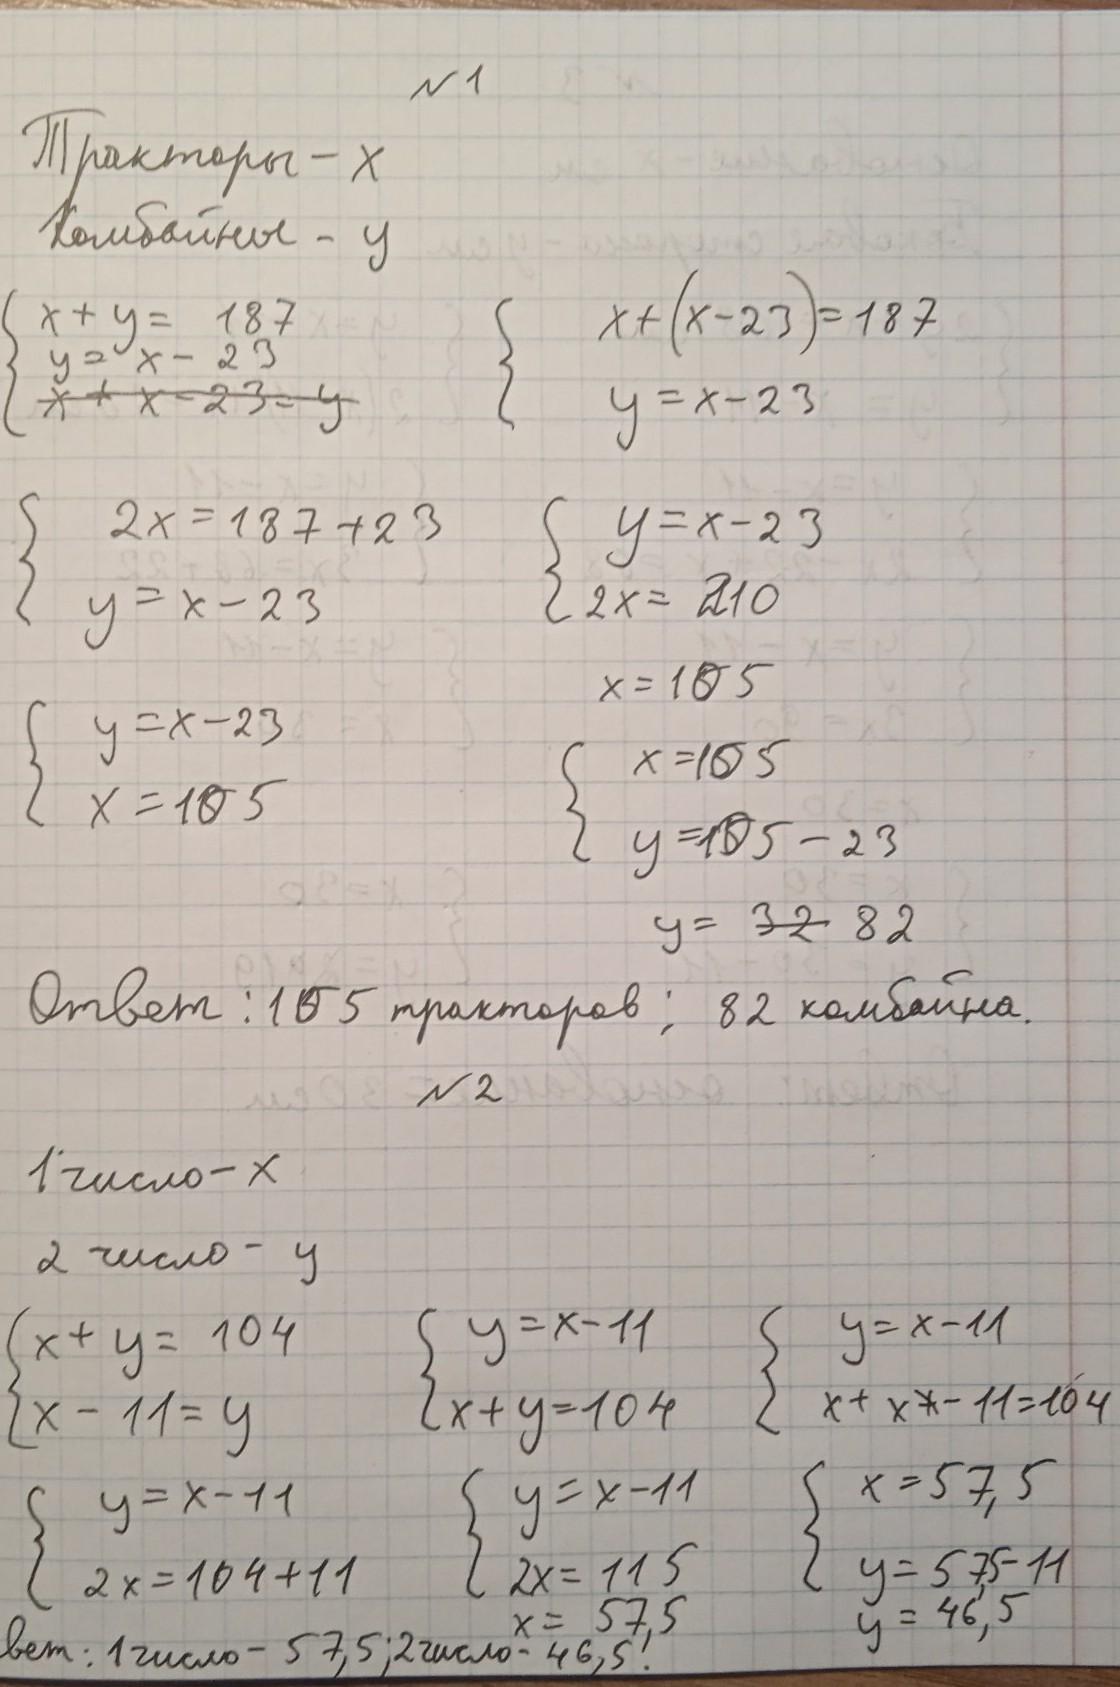 №1
Тракторы - x
Комбайны - y
x + y = 187
y = x - 23
x + x - 23 = y
x + (x - 23) = 187
y = x - 23
2x = 187 + 23
y = x - 23
y = x - 23
2x = 210
x = 105
y = x - 23
x = 105
x = 105
y = 105 - 23
y = 32 82
Ответ: 105 тракторов; 82 комбайна.
№2
1 число - x
2 число - y
x + y = 104
x - 11 = y
y = x - 11
x + y = 104
y = x - 11
x + x - 11 = 104
y = x - 11
2x = 104 + 11
y = x - 11
2x = 115
x = 57,5
x = 57,5
y = 57,5 - 11
y = 46,5
вет: 1 число - 57,5; 2 число - 46,5.